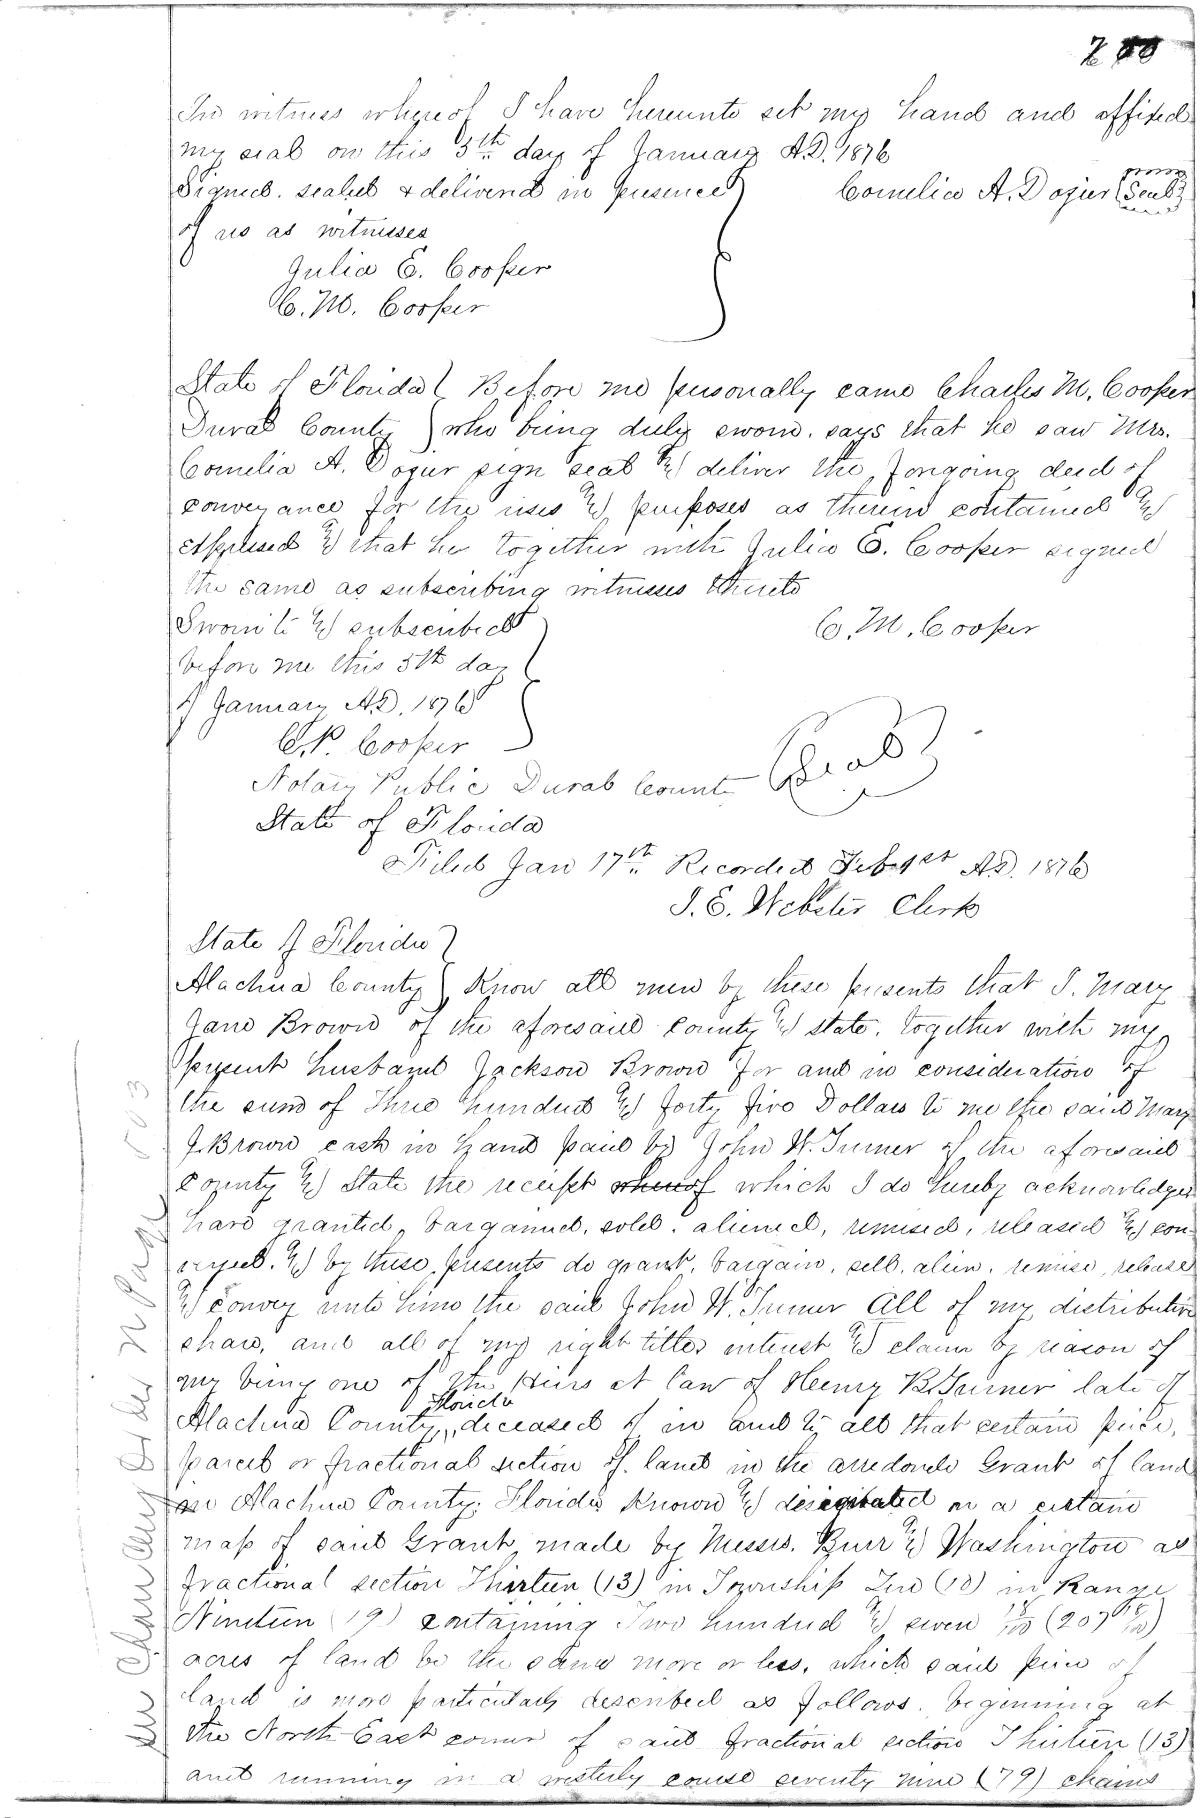 In witness whereof I have hereunto set my hand and affixed
my seal on this 5th day of January A.D. 1876
Signed. sealed & delivered in presence
Cornelia A. Dozier (Seal)
of us as witnesses
Julia E. Cooper
C. M. Cooper
State of Florida Before me personally came Charles M. Cooper
Duval County who being duly sworn. says that he saw Mrs.
Cornelia A. Dozier sign seal & deliver the foregoing deed of
conveyance for the uses & purposes as therein contained &
expressed & that he together with Julia E. Cooper signed
the same as subscribing witnesses thereto
Sworn to & subscribed
C. M. Cooper
before me this 5th day
of January A.D. 1876
C. P. Cooper
Notary Public Duval County
(Seal)
State of Florida
Filed Jan 17th Recorded Feb 1st A.D. 1876
J. E. Webster Clerk
State of Florida
Alachua County Know all men by these presents that I. Mary
Jane Brown of the aforesaid County & State. together with my
present husband Jackson Brown for and in consideration of
the sum of Three hundred & forty five Dollars to me the said Mary
J. Brown cash in hand paid by John W. Turner of the aforesaid
County & State the receipt whereof which I do hereby acknowledge
have granted, bargained, sold. aliened, remised, released & con-
veyed. & by these presents do grant, bargain, sell. alien. remise, release
& convey unto him the said John W. Turner All of my distributive
share, and all of my right title interest & claim by reason of
my being one of the Heirs at law of Henry B. Turner late of
Florida
Alachua County, deceased of in and to all that certain piece,
parcel or fractional section of land in the arredondo Grant of land
in Alachua County, Florida Known & designated on a certain
map of said Grant made by Messrs. Burr & Washington as
fractional section Thirteen (13) in Township Ten (10) in Range
Nineteen (19) containing Two hundred & seven (207
acres of land be the same more or less, which said piece of
land is more particularly described as follows. beginning at
the North East corner of said fractional section Thirteen (13)
and running in a westerly course seventy nine (79) chains
In Chancery Order N Page